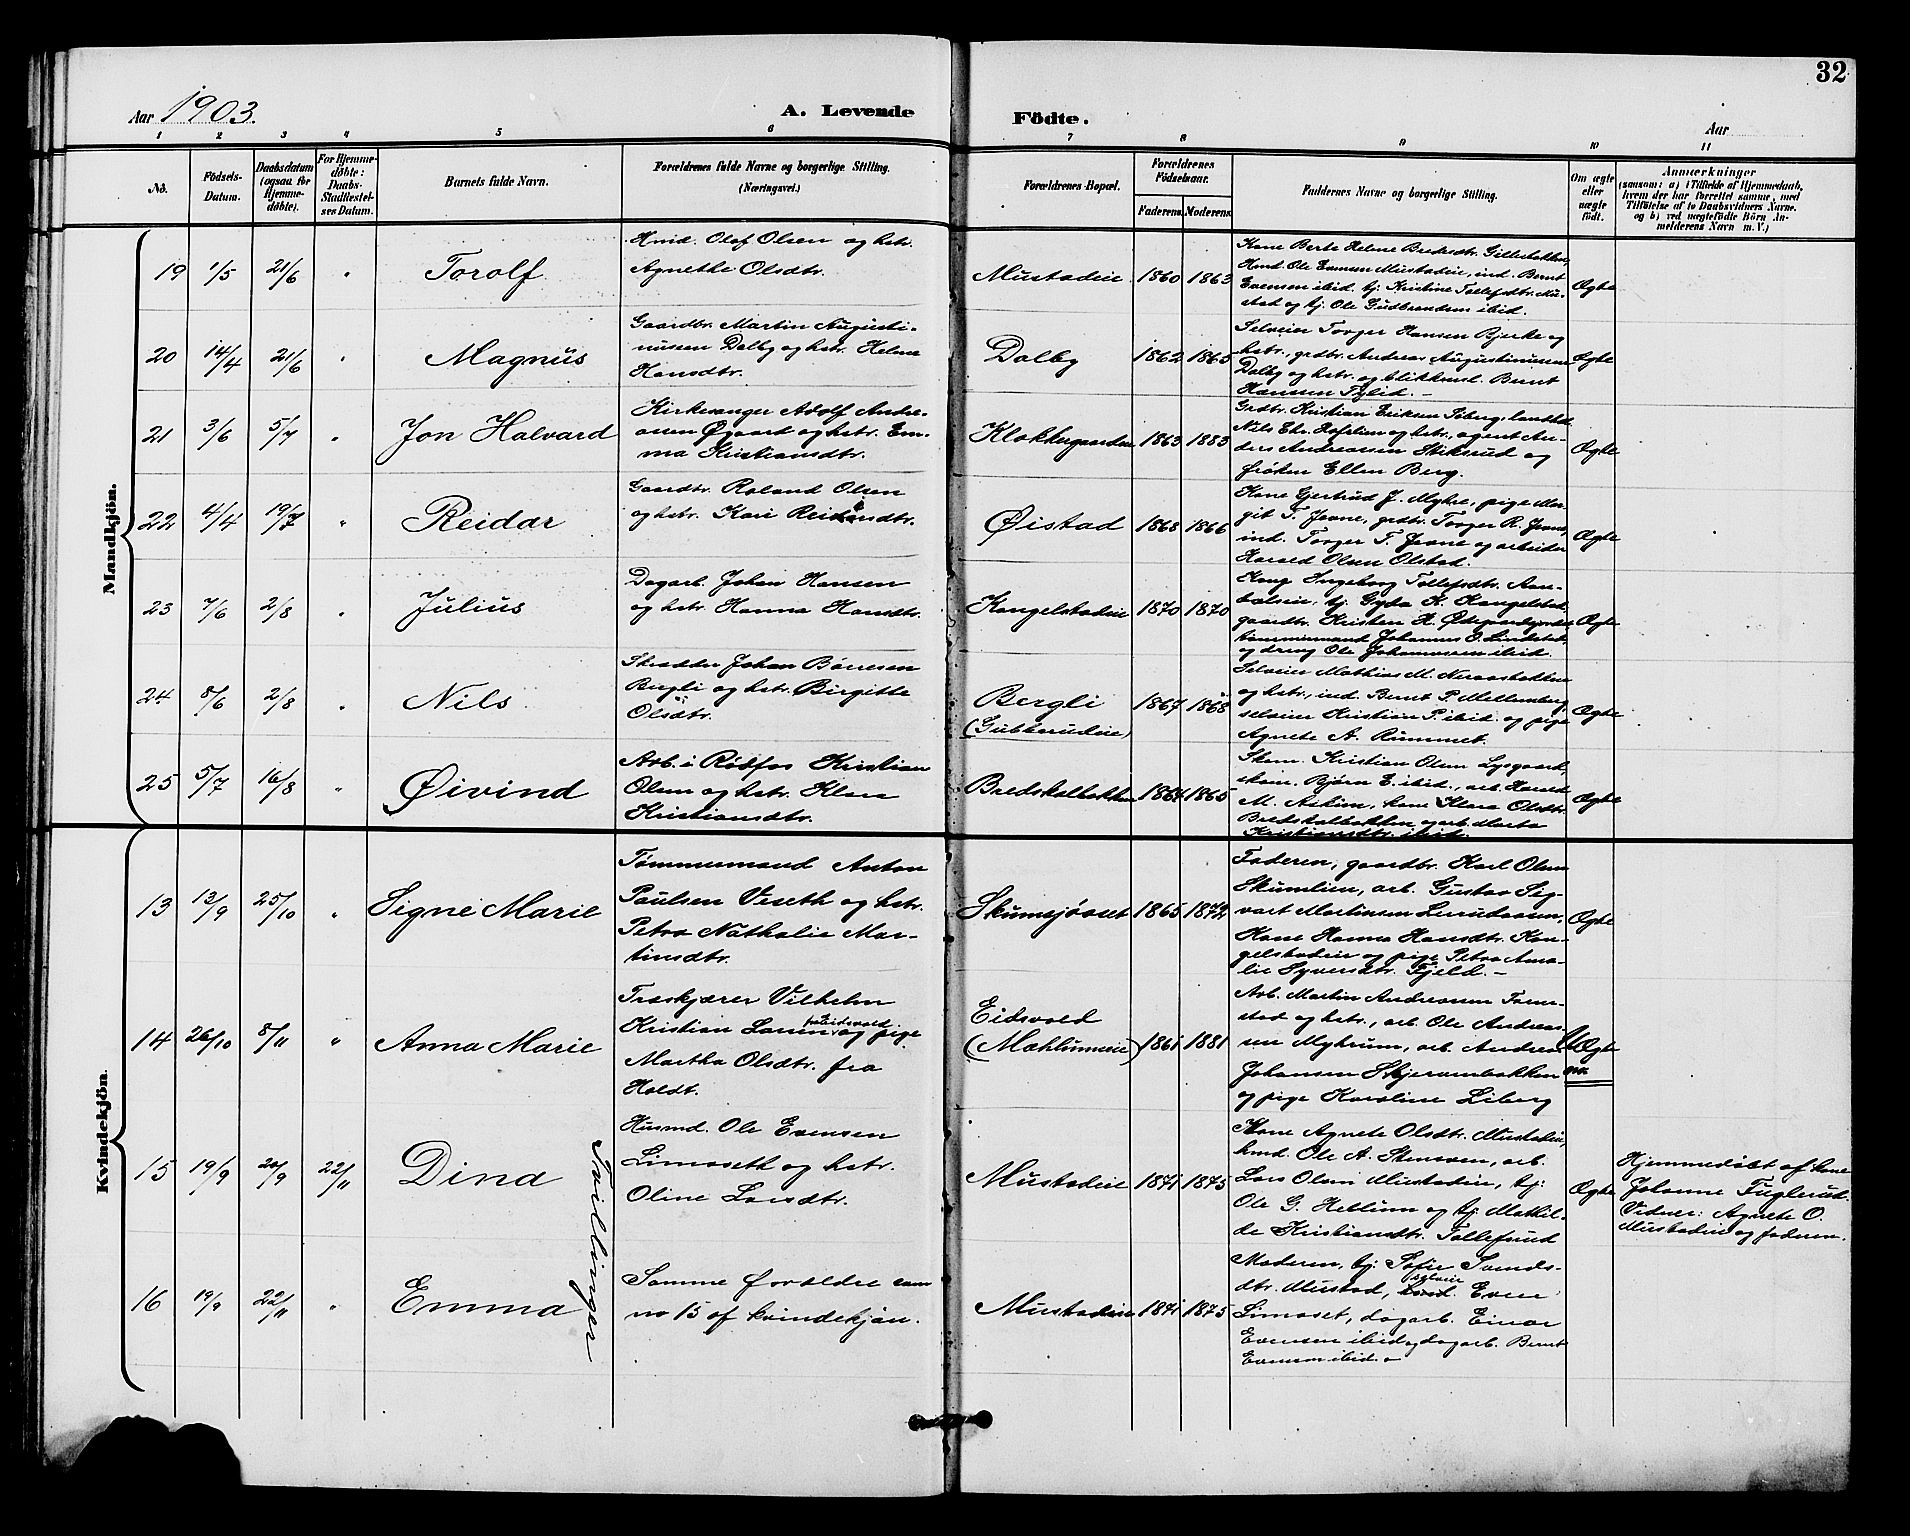 32
Aar 1903.
A. Levende
Födte.
Aar
1 2 3 4 5 6 7 8 9 10 11
No.
Födsels-
Datum.
Daabsdatum
(ogsaa for
Hjemme-
døbte).
For Hjemme-
døbte:
Daabs-
Stadfæstel-
ses Datum.
Barnets fulde Navn.
Forældrenes fulde Navne og borgerlige Stilling.
(Næringsvei.)
Forældrenes Bopæl.
Forældrenes
Födselsaar.
Faderens
Moderens
Faddernes Navne og borgerlige Stilling.
Om ægte
eller
uægte
födt.
Anmærkninger
(saasom: a) i Tilfælde af Hjemmedaab,
hvem der har forrettet samme, med
Tilføielse af to Daabsvidners Navne.
og b) ved uægtefödte Börn An-
melderens Navn m. V.)
Mandkjön.
19 1/5 21/6 "
Torolf
Hmd. Olaf Olsen og hstr.
Agnethe Olsdtr.
Mustadeie 1860 1863
Kone Berte Helene Bredesdtr. Gillebakken,
Hmd. Ole Evensen Mustadeie, ind. Bernt
Evensen ibid. tj. Kristine Tollefsdtr. Mu-
stad og tj. Ole Gudbrandsen ibid.
Ægte
20 14/4 21/6 "
Magnus
Gaardbr. Martin Augusti-
nussen Dalby og hstr. Helene
Hansdtr.
Dalby 1862 1865
Selveier Torger Hansen Bjerke og
hstr., grdbr. Anders Augustinussen
Dalby og hstr. og blikkensl. Bernt
Hanssen ibid. -
Ægte
21 3/6 5/7 "
Jon Halvard
Kirkesanger Adolf Andre-
asen Øgaard og hstr. Em-
ma Kristiansdtr.
Klokkergaarden 1863 1883
Grdbr. Kristian Eriksen Søberg, landhdl.
Nils Chr. Hofslien og hstr., agent An-
ders Andreassen Stiksrud og
frøken Ellen Berg.
Ægte
22 4/4 19/7 "
Reidar
Gaardbr. Roland Olsen
og hstr. Kari
Øistad 1868 1866
Kone Gjertrud J. Myhre, pige Mar-
git T. Jevne, grdbr. Torger R. Jevne,
ind. Torger T. Jevne og arbeider
Harald Olsen Olstad.
Ægte
23 7/6 2/8 "
Julius
Dagarb. Johan Hansen
og hstr. Hanna Hansdtr.
Kongelstadeie 1870 1870
Kone Ingeborg Tollefsdtr. Aan-
tj. Gyda K. Kongelstad,
gaardbr. Kristian H.
tømmermand Johannes O. Lundstad
og dreng Ole Johannesen ibid.
Ægte
24 8/6 2/8 "
Nils
Skrædder Johan Børresen
Bergli og hstr. Birgitte
Olsdtr.
Bergli
(Gubberudeie)
1867 1868
Selveier Mathias M. Neraasbakken
og hstr., ind. Bernt P. Mellemberg,
selveier Kristian P. ibid. og pige
Agnete A. Rummet.
Ægte
25 5/7 16/8 "
Øivind
Arb. i Rødfos Kristian
Olsen og hstr. Klara
Kristiansdtr.
Bredskalbakken 1864 1865
Skom. Kristian Olsen Lysgaard,
skom. Bjørn E. ibid., arb. Harald
M. Askim, kone Klara Olsdtr.
Bredskalbakken og arb. Marta
Kristiansdtr. ibid.
Ægte
Kvindekjön.
13 13/9 25/10 "
Signe Marie
Tømmermand Anton
Paulsen Veseth og hstr.
Petra Nathalie Mar-
tinsdtr.
Skumsjøvset 1865 1872
Faderen, gaardbr. Karl Olsen
Skumlien, arb. Gustav Sig-
vart Martinsen
Kone Hanna Hansdtr. Kon-
gelstadeie og pige Petra Ama-
lie Syversdtr. Fjeld. -
Ægte
14 26/10 8/11 "
Anna Marie
Træskjærer Vilhelm
Kristian Larsen paa Eidsvold og pige
Martha Olsdtr. fra
Holdt.
Eidsvold
(Mæhlumseie)
1861 1881
Arb. Martin Andreassen
og hstr., arb. Ole Andreas-
sen Myhrum, arb. Andreas
Johansen Skjervenbakken
og pige Karoline Liberg
Uægte
15 19/9 20/9 22/11
Dina
Tvillinger
Husmd. Ole Evensen
Limoseth og hstr.
Oline Larsdtr.
Mustadeie 1871 1875
Kone Agnete Olsdtr. Mustadeie,
hmd. Ole A. Stensven, arb.
Lars Olsen Mustadeie, tj.
Ole G. Hellum og tj. Mathil-
de Kristiansdtr. Tollefsrud
Ægte
Hjemmedøbt af kone
Johanne Fuglerud.
Vidner: Agnete O.
Mustadeie og faderen.
16 19/9 22/11 "
Emma
Samme forældre som
no 15 af kvindekjøn.
Mustadeie 1871 1875
Moderen, tj. Sofie Svends-
dtr. Mustad, selveier Even
Limoset, dagarb. Einar
Evensen ibid og dagarb. Bernt
Evensen ibid.